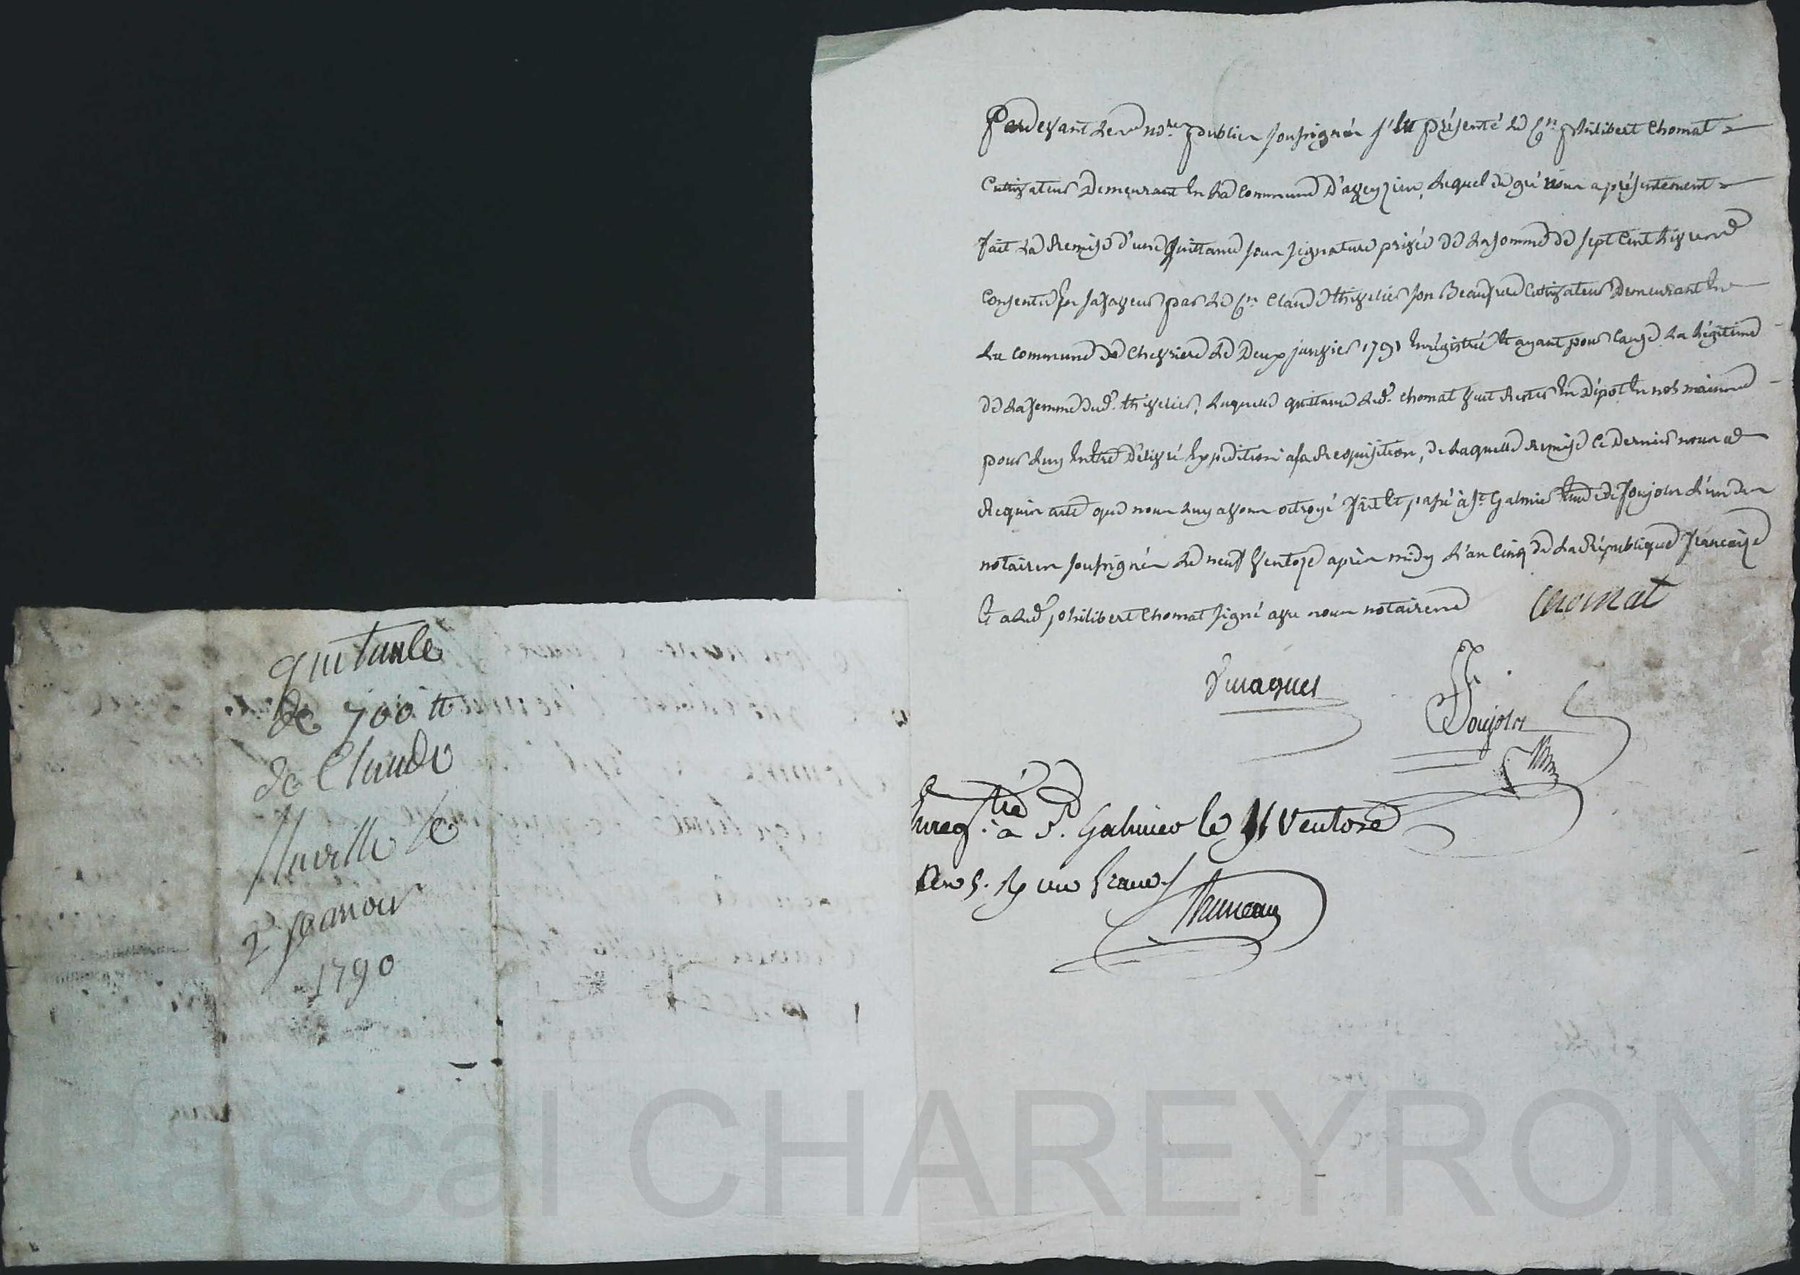 Pardevant les nores publics soussignés s'est présenté le Cn philibert Chomat
Cultivateur demeurant en la commune d'aveyzieu, lequel de gré nous a présentement
fait la Remise d'une quittance sous signature privée de la somme de sept cent livres
Consentie en sa faveur par le Cn Claude thivelier son Beaufrere Cultivateur demeurant en
la commune de Chevriere le deux janvier 1791 Enregistrée et ayant pour cause la légitime
de la femme dud. thivelier, laquelle quittance led. Chomat veut Rester En dépot En nos mains
pour luy En etre délivré Expedition a sa Requisition, de laquelle Remise Ce dernier nous a
Requis acte que nous luy avons octroyé fait et passé à St Galmier Etude de Soujols l'un des
notaires soussignés le neuf Ventose après midy l'an Cinq de la République francaise
Et a led. philibert Chomat signé avec nous notaires
Chomat
Soujols
Enregtré à St. Galmier le 11 Ventose
un franc
quitanse
de 700 lt
de Claude
2 Janvier
1790
Pascal CHAREYRON